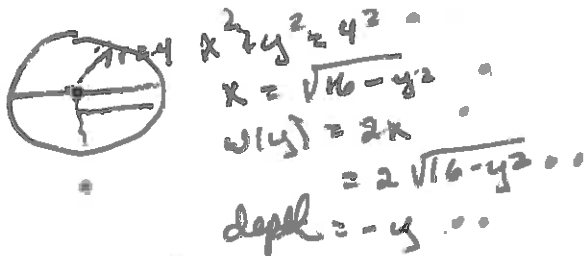 r = 4
x² + y² = 4²
x = √16 - y²
w(y) = 2x
= 2 √16 - y²
depth = - y